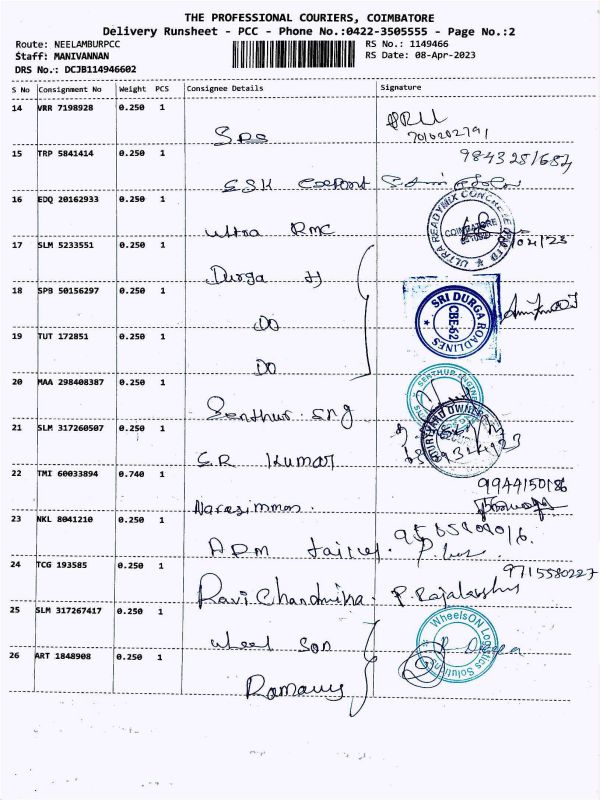 THE PROFESSIONAL COURIERS, COIMBATORE
Delivery Runsheet - PCC - Phone No.:0422-3505555 - Page No.:2
Route: NEELAMBURPCC RS No.: 1149466
Staff: MANIVANNAN RS Date: 08-Apr-2023
DRS No.: DCJB114946602
S No Consignment No Weight PCS Consignee Details Signature
14 VRR 7198928 0.250 1
7010202791
SPS
15 TRP 5841414 0.250 1 9843281684
SSK
16 EDQ 20162933 0.250 1
Ultra RMC
ULTRA READYMIX CONCRETE COIMBATORE
17 SLM 5233551 0.250 1
Durga
18 SPB 50156297 0.250 1
DO
SRI DURGA ROADLINES CBE-62
19 TUT 172851 0.250 1
DO
20 MAA 298408387 0.250 1
Senthur Eng
21 SLM 317260507 0.250 1
S.R Kumar
22 TMI 60033894 0.740 1 9944150186
23 NKL 8041210 0.250 1
24 TCG 193585 0.250 1 9715580227
P. Rajalasshmi
25 SLM 317267417 0.250 1
Wheel Son
WheelsON Logistics Solutions
26 ART 1848908 0.250 1